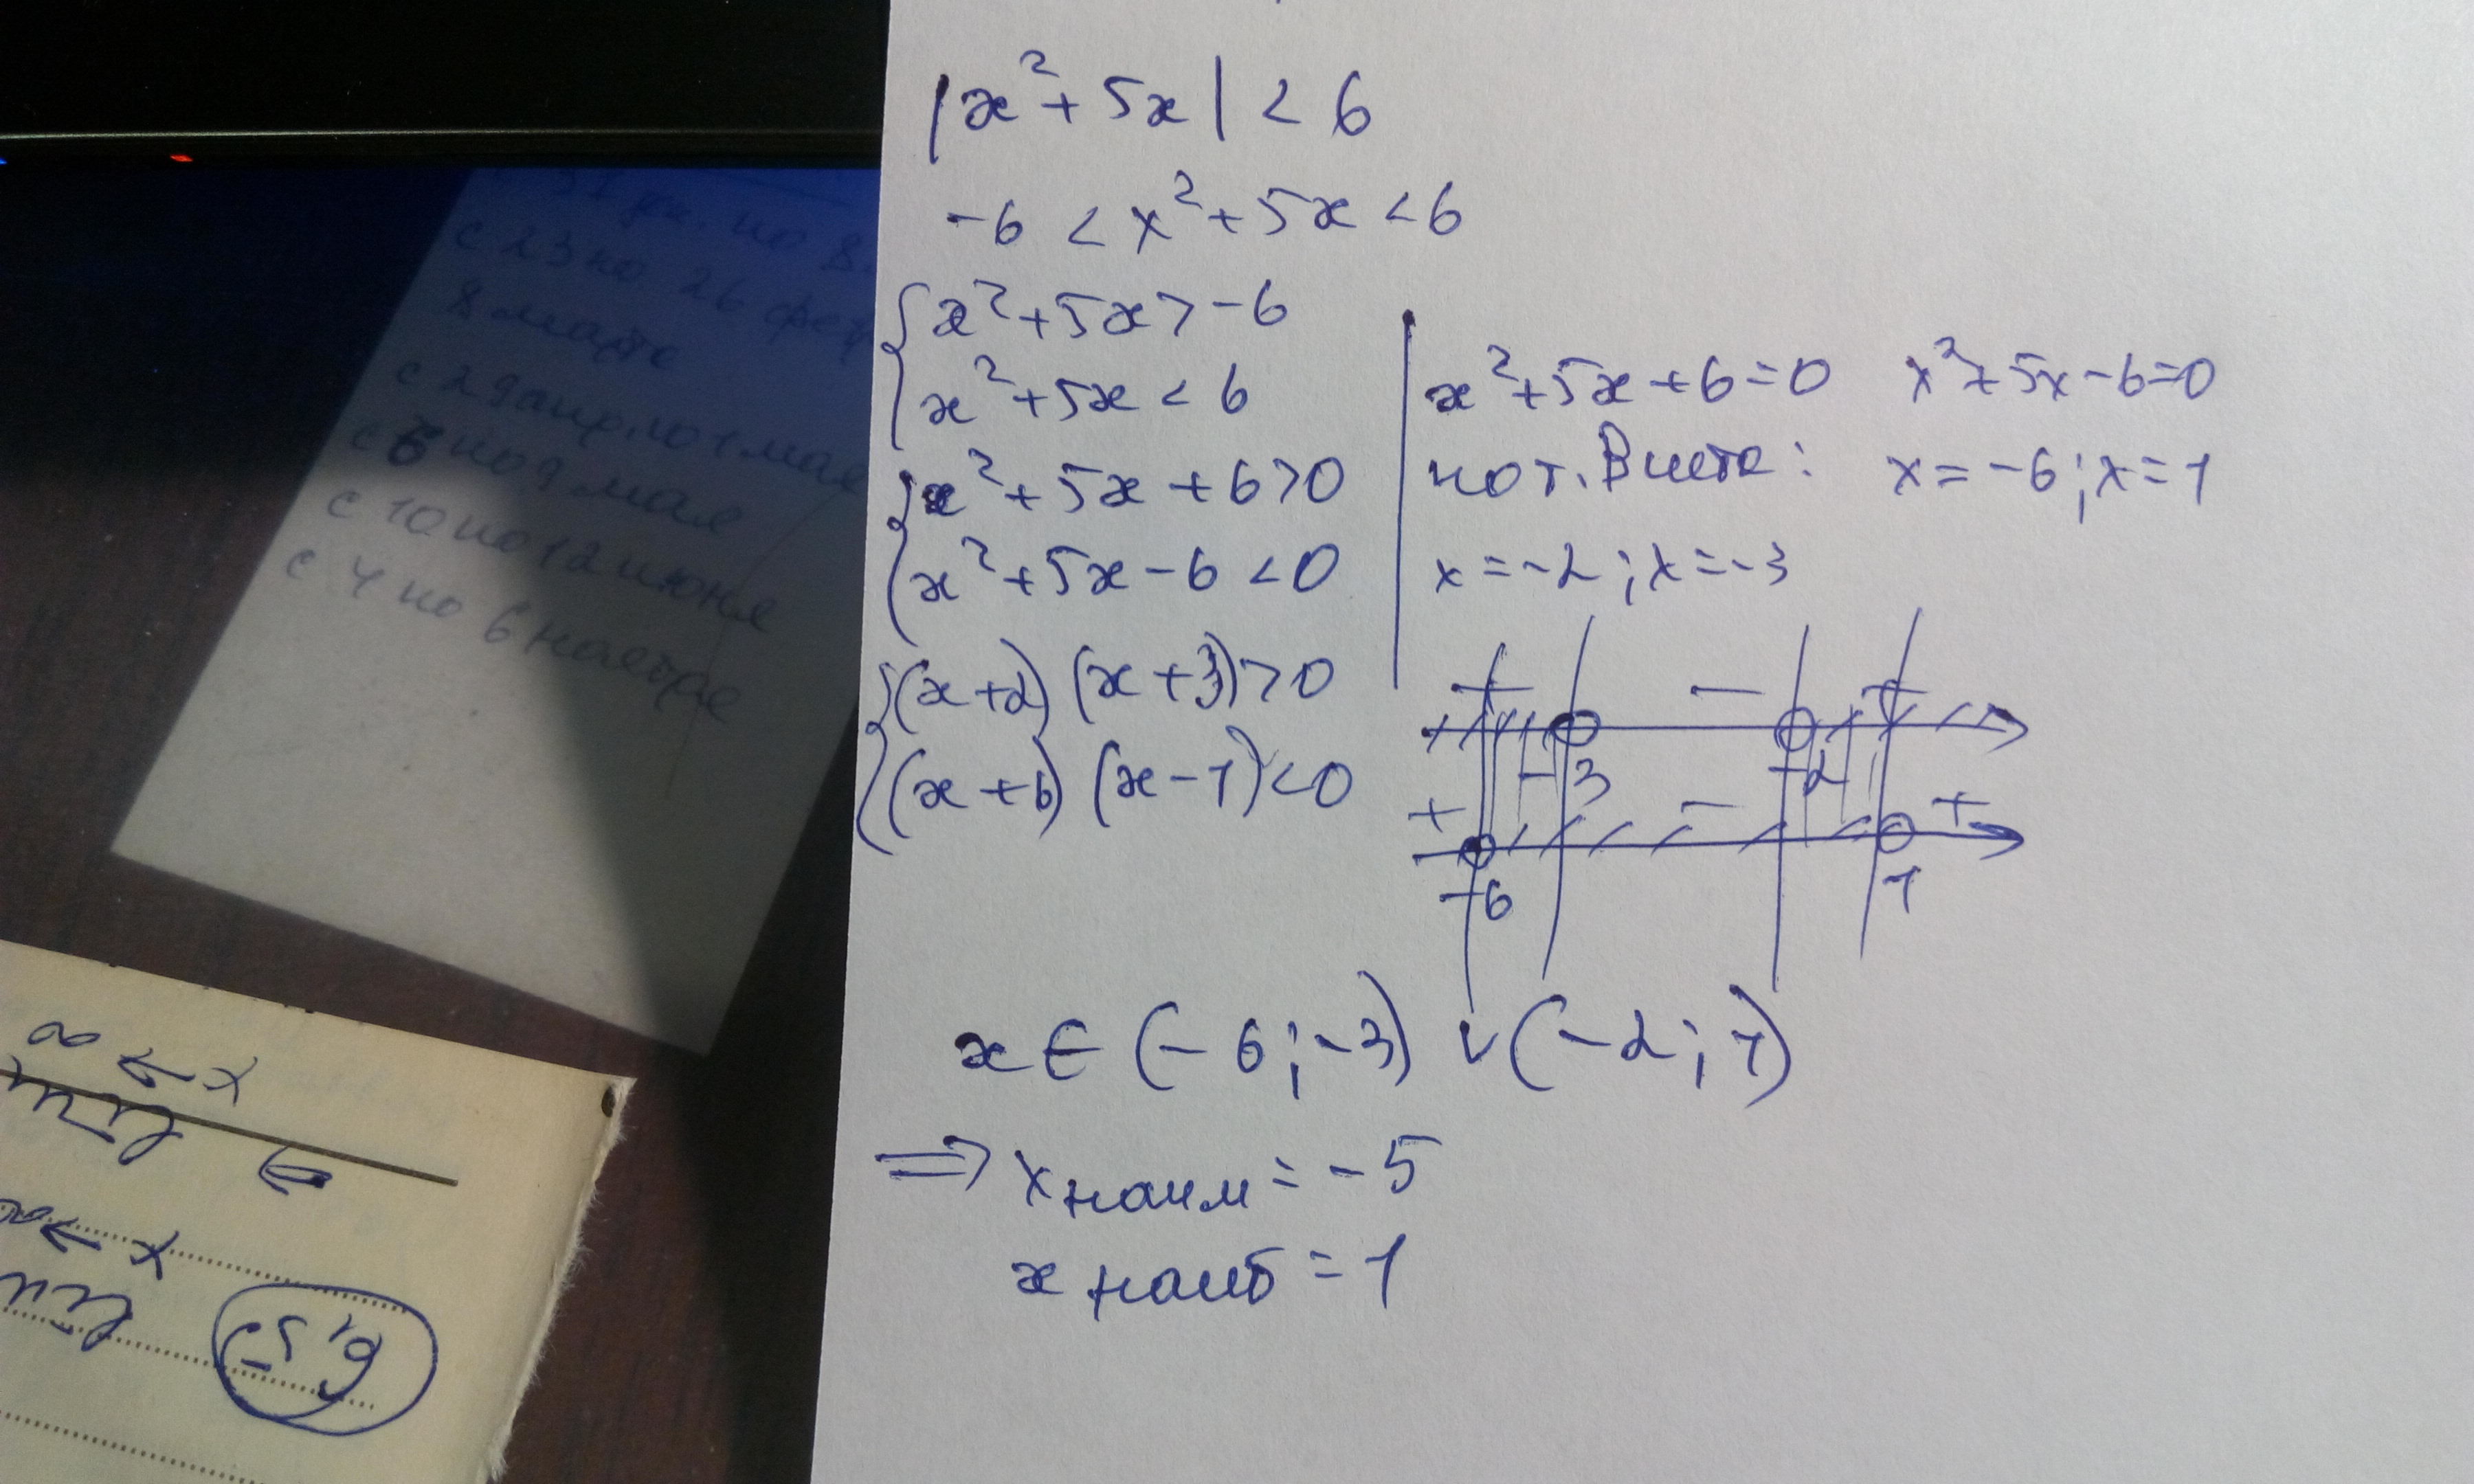 |x²+5x| < 6
-6 < x²+5x < 6
x²+5x > -6
x²+5x < 6
x²+5x+6>0
x²+5x-6<0
(x+2)(x+3)>0
(x+6)(x-1)<0
x²+5x+6=0 x²+5x-6=0
по т. Виета: x=-6; x=1
x=-2; x=-3
+ - +
-3 -2
+ - +
-6 1
x∈(-6;-3)∨(-2;1)
⇒ xнаим = -5
xнаиб = 1
с 23 по 26 фев
8 марта
с 29 апр. по 1 мая
с 6 по 9 мая
с 10 по 12 июня
с 4 по 6 ноября
x→∞
x→